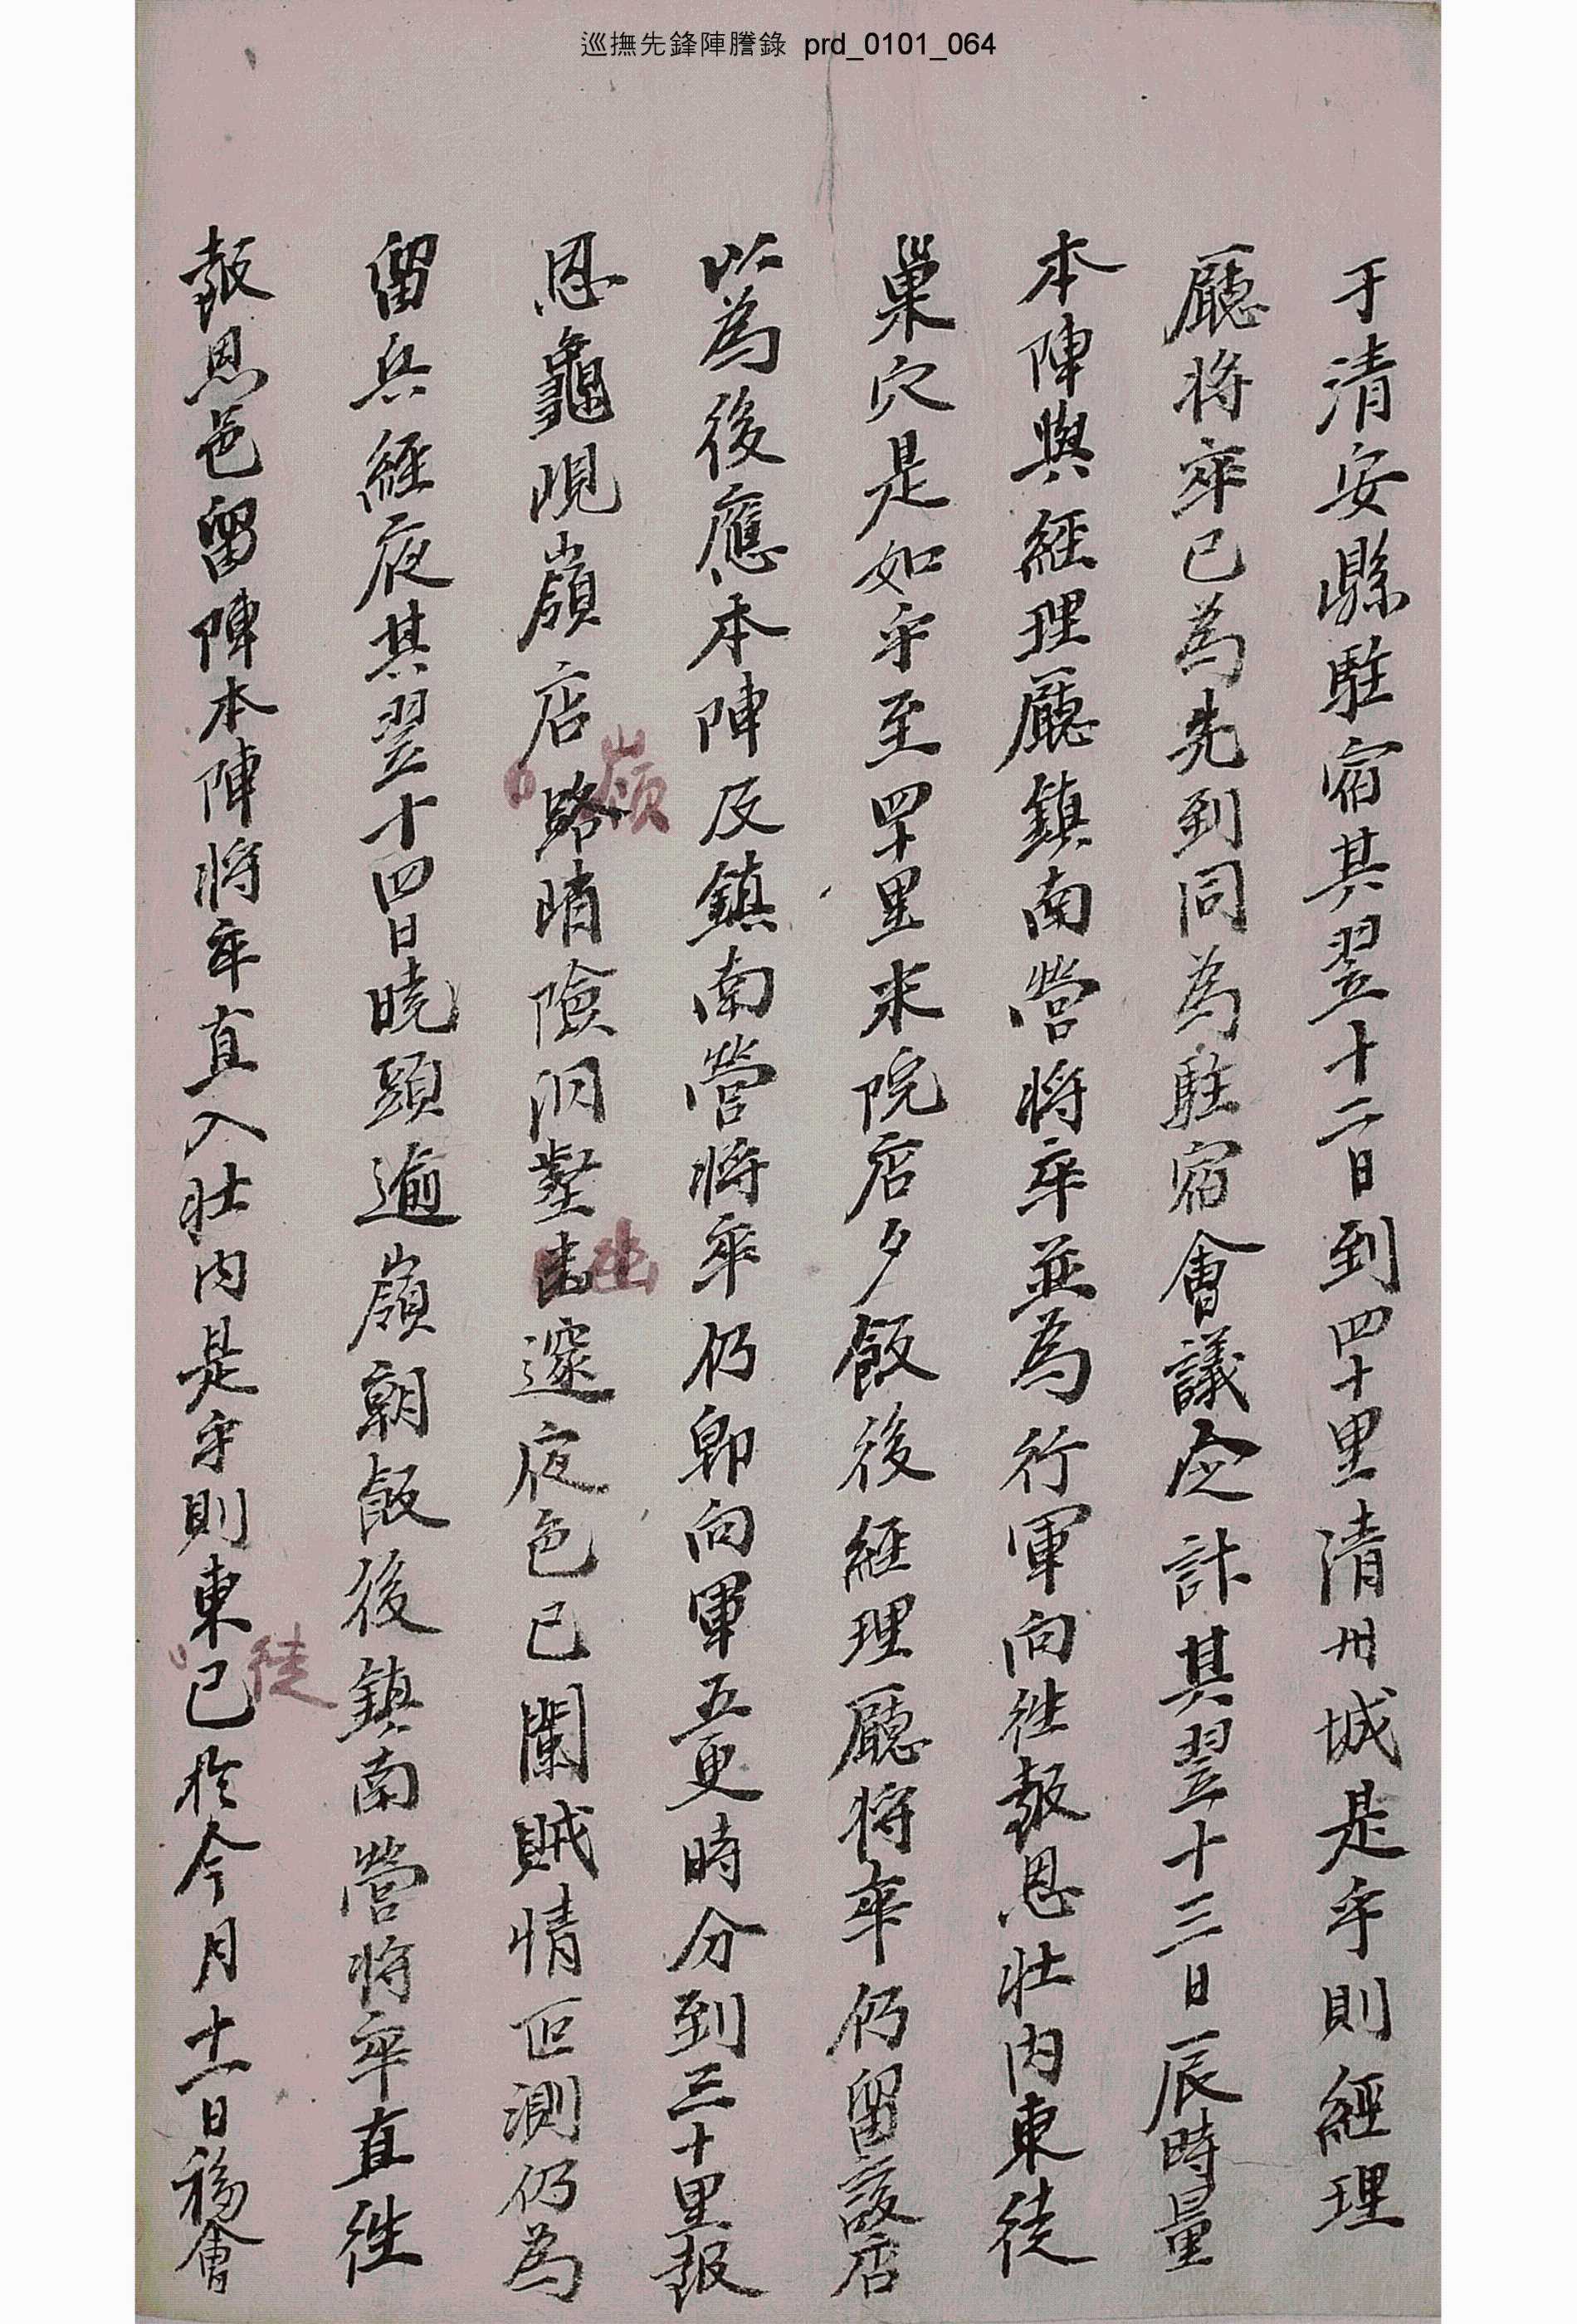 巡撫先鋒陣謄錄 prd_0101_064
于清安縣駐宿其翌十二日到四十里清州城是乎則經理
廳将卒已為先到同為駐宿會議仝計其翌十三日辰時量
本陣與經理廳鎮南營将卒並為行軍向往報恩壯內東徒
巢穴是如乎至四十里米院店夕飯後經理廳将卒仍留該店
以為後應本陣及鎮南營将卒仍卽向軍五更時分到三十里報
恩龜峴嶺店路峭險洞壑甴邃夜色已闌賊情叵測仍為
嶺
幽
留兵經夜其翌十四日曉頭逾嶺朝飯後鎮南營将卒直往
報恩邑留陣本陣将卒直入壯內是乎則東已於今月十一日移會
徒